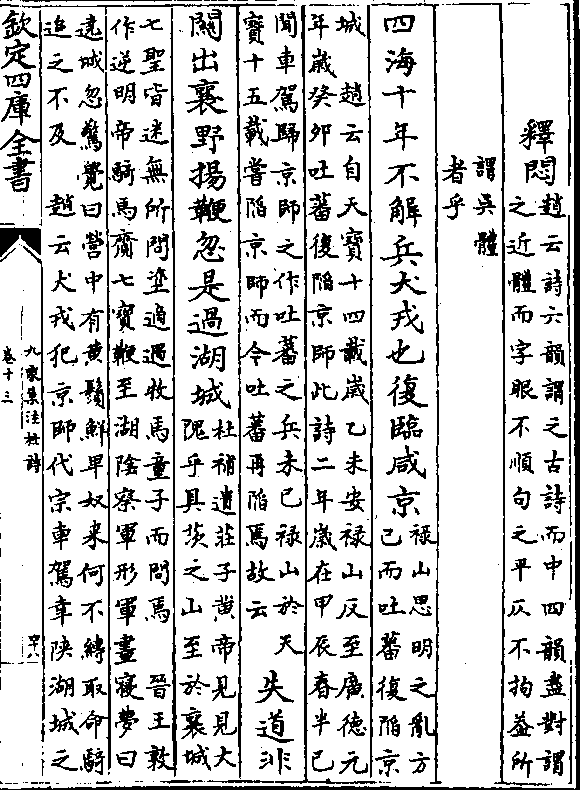 釋悶
趙云詩六韻謂之古詩而中四韻盡對謂
之近體而字眼不順句之平仄不拘葢所
謂吳體
者乎
四海十年不解兵犬戎也復臨咸京
祿山思明之亂方
已而吐蕃復陷京
城　趙云自天寳十四載歲乙未安祿山反至廣德元
年歲癸卯吐蕃復陷京師此詩二年歲在甲辰春半已
聞車駕歸京師之作吐蕃之兵未已祿山於天
寳十五載嘗陷京師而令吐蕃再陷焉故云
失道非
關出襄野揚鞭忽是過湖城
杜補遺莊子黄帝見見大
隗乎具茨之山至於襄城
七聖皆迷無所問塗適遇牧馬童子而問焉　晉王敦
作逆明帝騎馬賷七寳鞭至湖陰察軍形軍晝寢夢曰
遶城忽驚覺曰營中有黄鬚鮮卑奴来何不縛取命騎
追之不及　趙云犬戎犯京師代宗車駕幸陜湖城之
欽定四庫全書
九家集注杜詩
卷十三